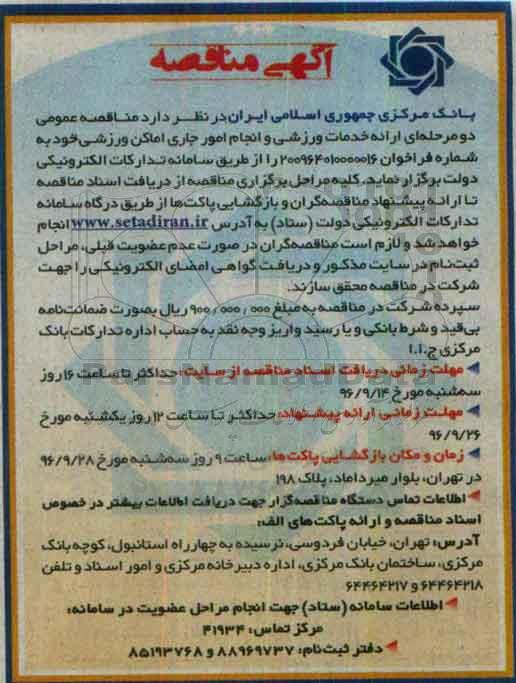 آگهی مناقصه
بانک مرکزی جمهوری اسلامی ایران در نظر دارد مناقصه عمومی
دو مرحله‌ای ارائه خدمات ورزشی و انجام امور جاری اماکن ورزشی خود به
شماره فراخوان ۲۰۰۹۶۴۰۱۰۰۰۰۰۱۶ را از طریق سامانه تدارکات الکترونیکی
دولت برگزار نماید. کلیه مراحل برگزاری مناقصه از دریافت اسناد مناقصه
تا ارائه پیشنهاد مناقصه‌گران و بازگشایی پاکت‌ها از طریق درگاه سامانه
تدارکات الکترونیکی دولت (ستاد) به آدرس www.setadiran.ir انجام
خواهد شد و لازم است مناقصه‌گران در صورت عدم عضویت قبلی، مراحل
ثبت‌نام در سایت مذکور و دریافت گواهی امضای الکترونیکی را جهت
شرکت در مناقصه محقق سازند.
سپرده شرکت در مناقصه به مبلغ ۹۰۰٫۰۰۰٫۰۰۰ ریال بصورت ضمانت‌نامه
بی‌قید و شرط بانکی و یا رسید واریز وجه نقد به حساب اداره تدارکات بانک
مرکزی ج.ا.ا
مهلت زمانی دریافت اسناد مناقصه از سایت: حداکثر تا ساعت ۱۶ روز
سه‌شنبه مورخ ۹۶/۹/۱۴
مهلت زمانی ارائه پیشنهاد: حداکثر تا ساعت ۱۲ روز یکشنبه مورخ
۹۶/۹/۲۶
زمان و مکان بازگشایی پاکت‌ها: ساعت ۹ روز سه‌شنبه مورخ ۹۶/۹/۲۸
در تهران، بلوار میرداماد، پلاک ۱۹۸
اطلاعات تماس دستگاه مناقصه‌گزار جهت دریافت اطلاعات بیشتر در خصوص
اسناد مناقصه و ارائه پاکت‌های الف:
آدرس: تهران، خیابان فردوسی، نرسیده به چهارراه استانبول، کوچه بانک
مرکزی، ساختمان بانک مرکزی، اداره دبیرخانه مرکزی و امور اسناد و تلفن
۶۴۴۶۴۲۱۸ و ۶۴۴۶۴۲۱۷
اطلاعات سامانه (ستاد) جهت انجام مراحل عضویت در سامانه:
مرکز تماس: ۴۱۹۳۴
دفتر ثبت‌نام: ۸۸۹۶۹۷۳۷ و ۸۵۱۹۳۷۶۸